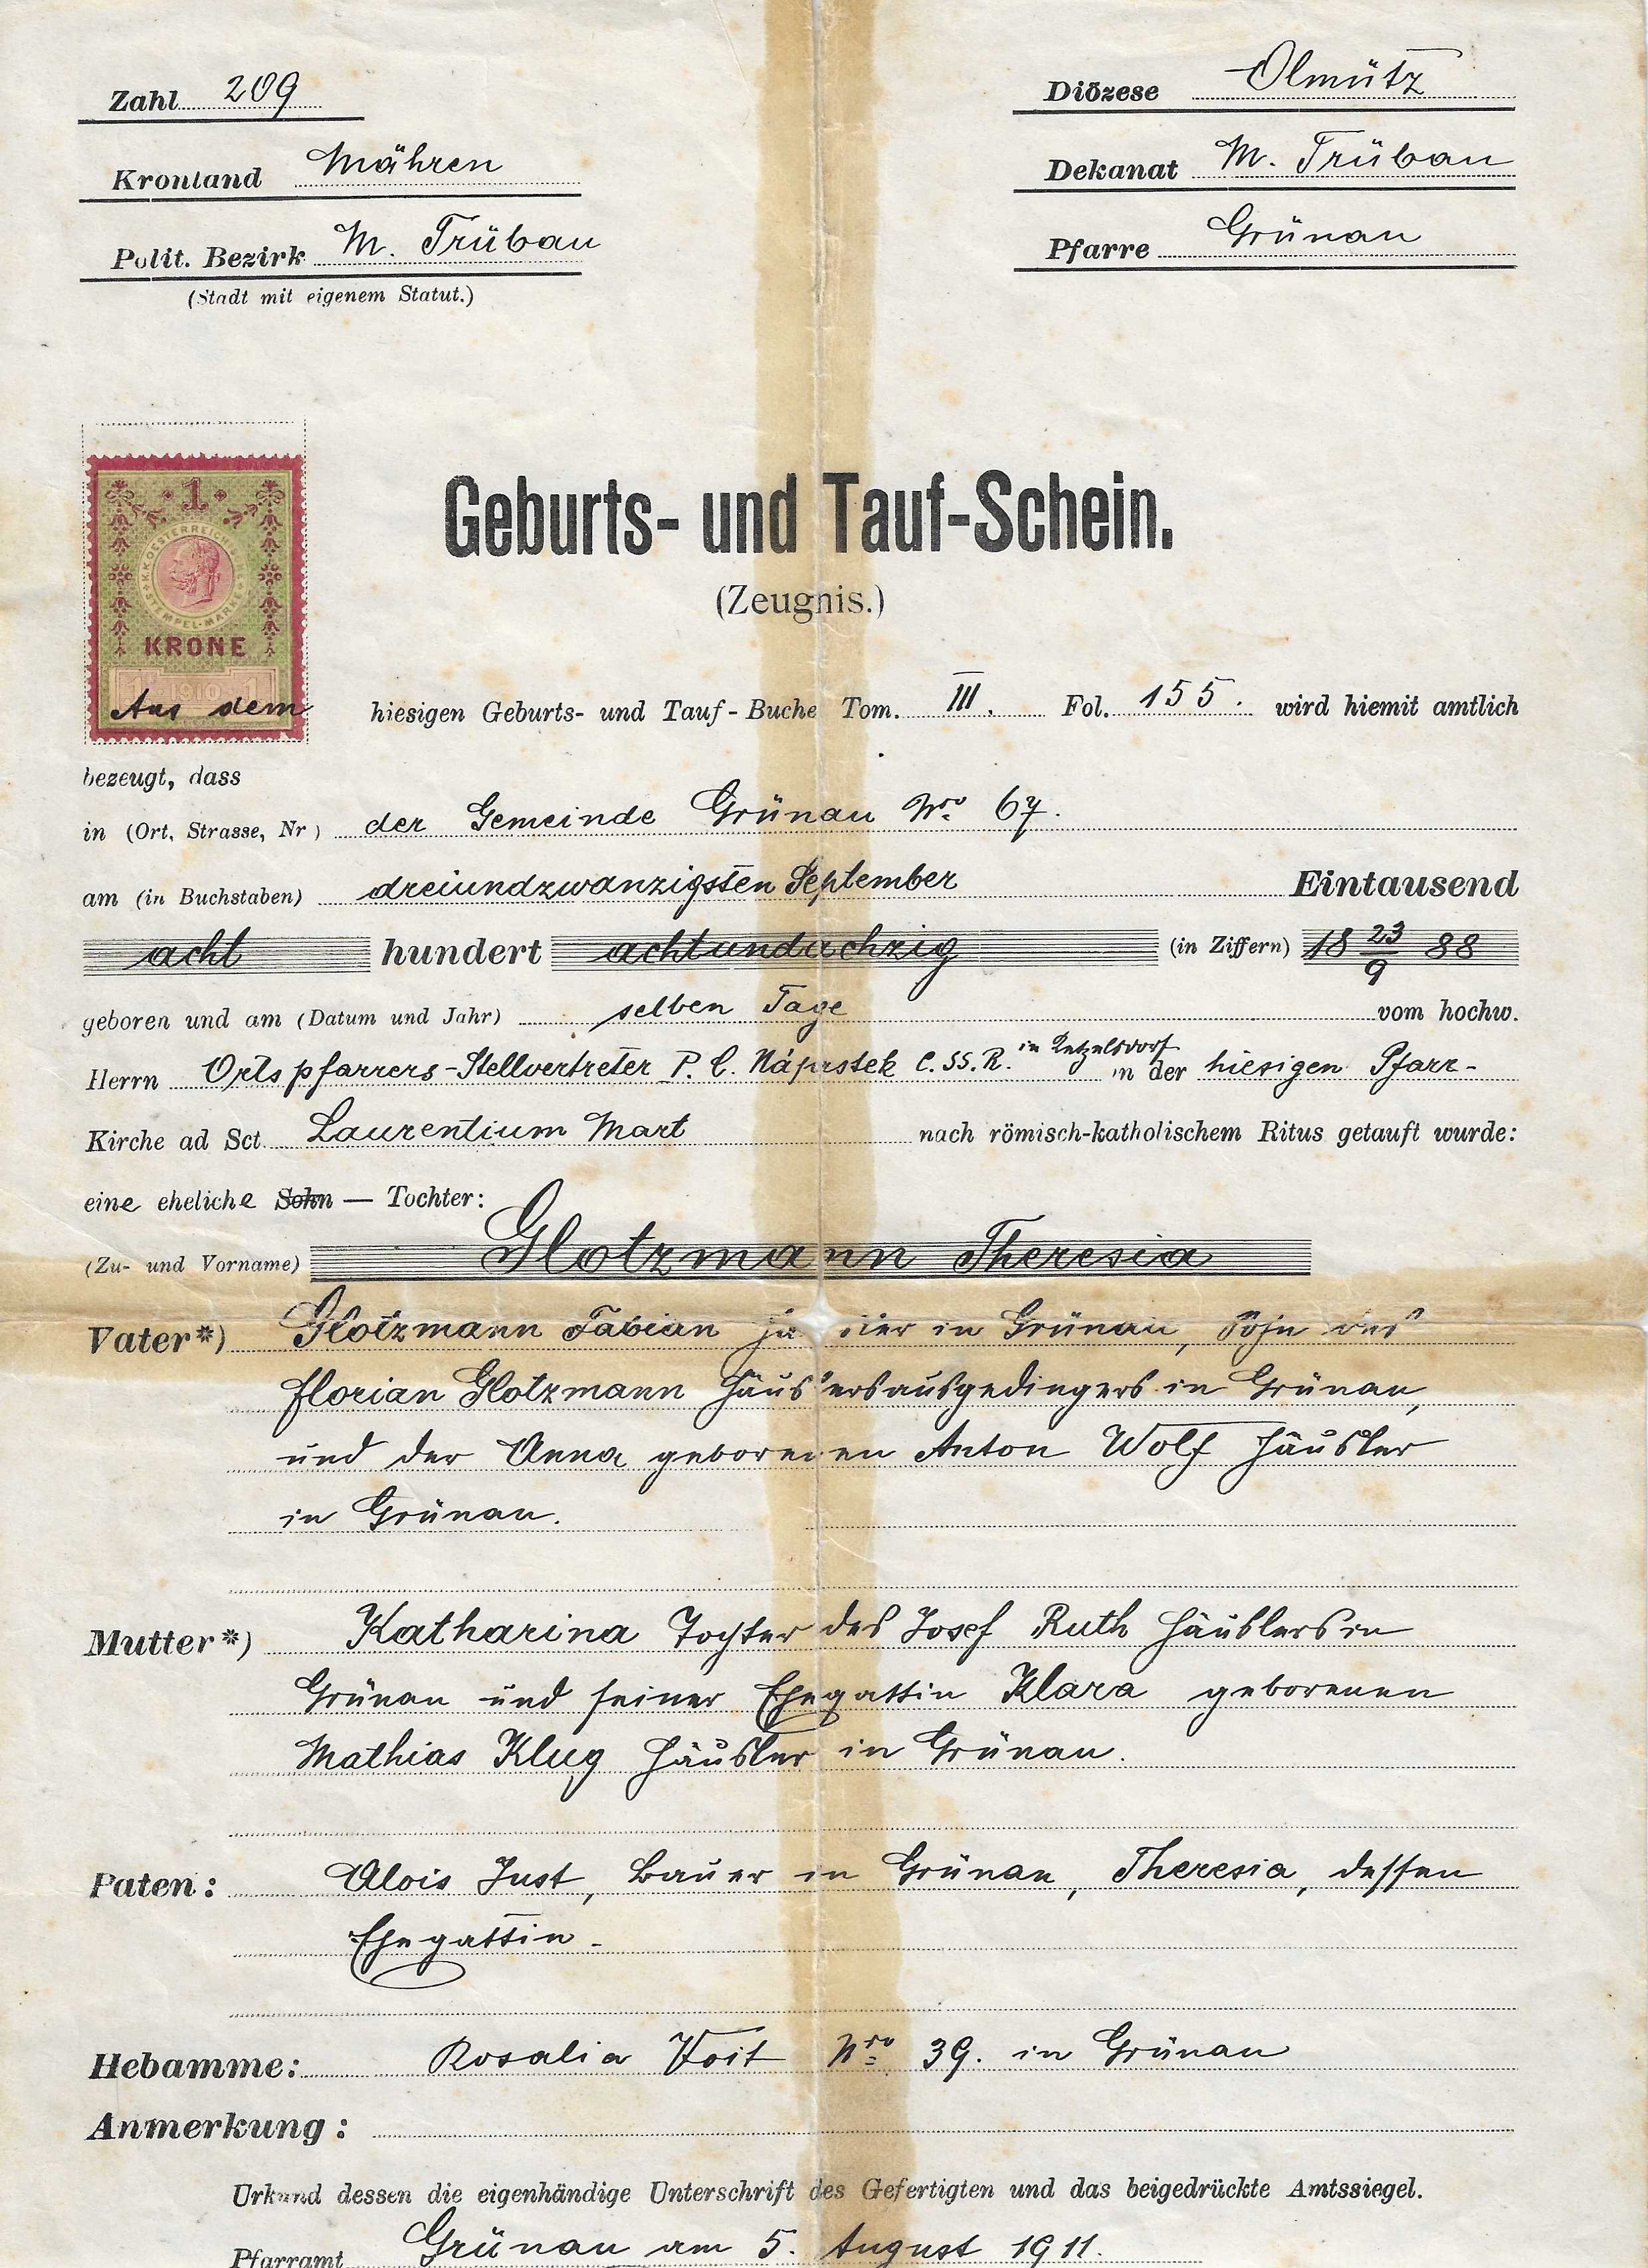 Zahl 209
Diözese Olmütz
Kronland Mähren
Dekanat M. Trübau
Polit. Bezirk M. Trübau
Pfarre Grünau
(Stadt mit eigenem Statut.)
1
K.K. OESTERREICHISCHE STEMPEL-MARKE
KRONE
1 1910 1
Geburts- und Tauf-Schein.
(Zeugnis.)
Aus dem hiesigen Geburts- und Tauf-Buche Tom. III. Fol. 155. wird hiemit amtlich
bezeugt, dass
in (Ort, Strasse, Nr) der Gemeinde Grünau Nro 67.
am (in Buchstaben) dreiundzwanzigsten September Eintausend
acht hundert achtundachzig (in Ziffern) 18 23/9 88
geboren und am (Datum und Jahr) selben Tage vom hochw.
Herrn Ortspfarrers-Stellvertreter P. C. Náprstek C. SS. R. in Ketzelsdorf in der hiesigen Pfarr-
Kirche ad Sct. Laurentium Mart nach römisch-katholischem Ritus getauft wurde:
eine eheliche Sohn — Tochter:
(Zu- und Vorname) Glotzmann Theresia
Vater*) Glotzmann Fabian in Grünau, Sohn des
Florian Glotzmann Häuslersausgedingers in Grünau,
und der Anna geborenen Anton Wolf Häusler
in Grünau.
Mutter*) Katharina Tochter des Josef Ruth Häuslers in
Grünau und seiner Ehegattin Klara geborenen
Mathias Klug Häusler in Grünau.
Paten: Alois Just, Bauer in Grünau, Theresia, dessen
Ehegattin.
Hebamme: Rosalia Voit Nro 39. in Grünau
Anmerkung:
Urkund dessen die eigenhändige Unterschrift des Gefertigten und das beigedrückte Amtssiegel.
Pfarramt Grünau am 5. August 1911.